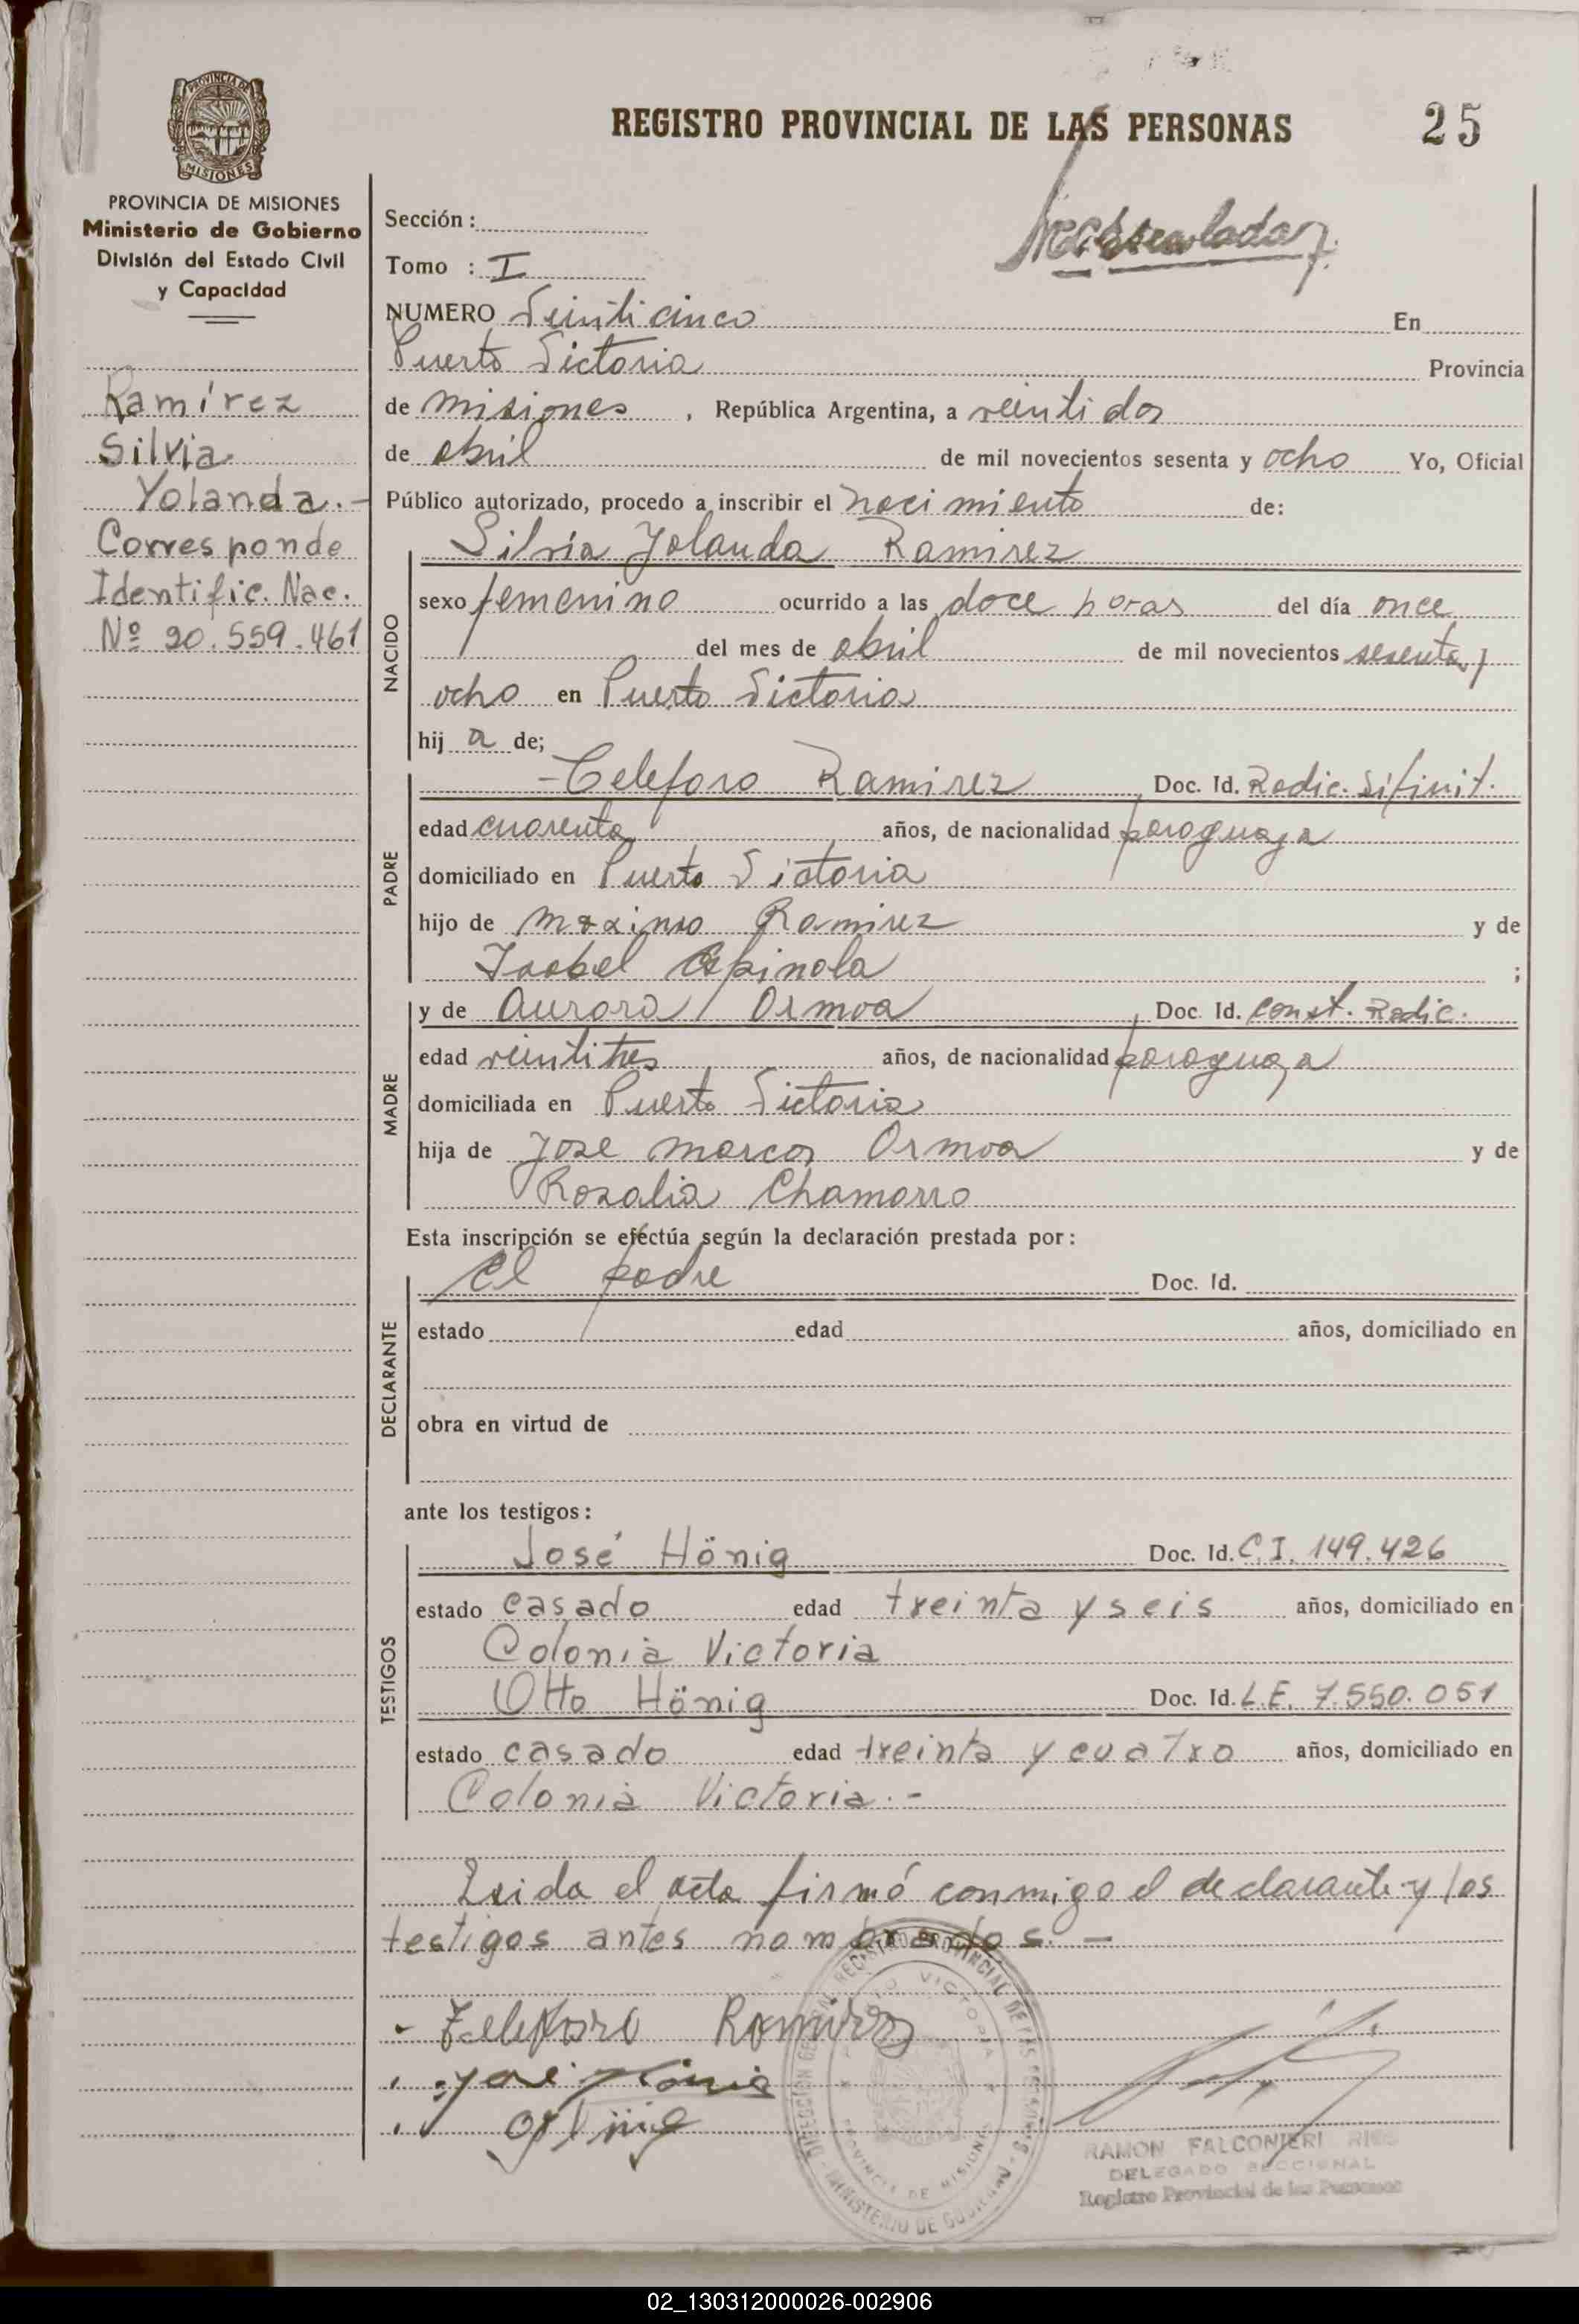 PROVINCIA DE
MISIONES
REGISTRO PROVINCIAL DE LAS PERSONAS 25
PROVINCIA DE MISIONES
Ministerio de Gobierno
División del Estado Civil
y Capacidad
Ramírez
Silvia
Yolanda.-
Corresponde
Identific. Nac.
Nº 20.559.461
Sección :
Tomo : I
NUMERO Veinticinco En
Puerto Victoria Provincia
de Misiones , República Argentina, a veintidos
de abril de mil novecientos sesenta y ocho Yo, Oficial
Público autorizado, procedo a inscribir el nacimiento de:
Silvia Yolanda Ramirez
NACIDO
sexo femenino ocurrido a las doce horas del día once
del mes de abril de mil novecientos sesenta y
ocho en Puerto Victoria
hij a de;
PADRE
-Celeforo Ramirez Doc. Id. Radic.
edad cuarenta años, de nacionalidad paraguaya
domiciliado en Puerto Victoria
hijo de Maximo Ramirez y de
Isabel Espinola ;
MADRE
y de Aurora Ormoa Doc. Id. Const. Radic.
edad veintitres años, de nacionalidad paraguaya
domiciliada en Puerto Victoria
hija de Jose Marcos Ormoa y de
Rosalia Chamorro
Esta inscripción se efectúa según la declaración prestada por :
DECLARANTE
El padre Doc. Id.
estado edad años, domiciliado en
obra en virtud de
ante los testigos :
TESTIGOS
José Hönig Doc. Id. C.I. 149.426
estado casado edad treinta y seis años, domiciliado en
Colonia Victoria
Otto Hönig Doc. Id. L.E. 7.550.051
estado casado edad treinta y cuatro años, domiciliado en
Colonia Victoria.-
Leida el acta firmó conmigo el declarante y los
testigos antes nombrados.-
Ramirez
José Hönig
RAMON FALCONIERI
DELEGADO SECCIONAL
Registro Provincial de las Personas
02_130312000026-002906